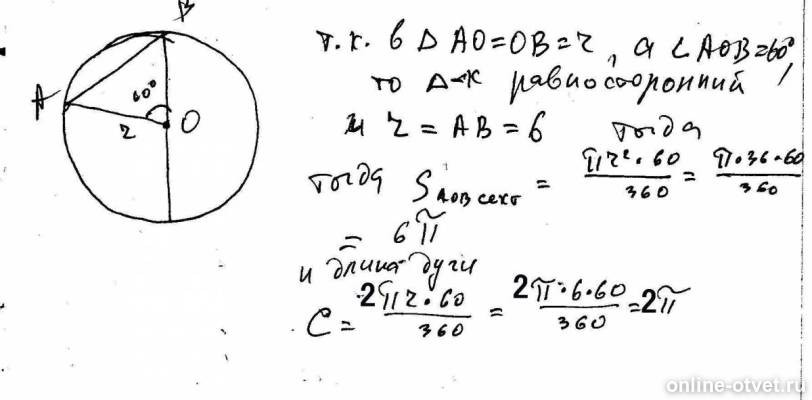 B
A
60°
r
O
т.к. в △ AO=OB=r, а ∠AOB=60°,
то △-к равносторонний
и r = AB = 6 тогда
тогда S AOB сект = πr²·60/360 = π·36·60/360
= 6π
и длина дуги
C = 2πr·60/360 = 2π·6·60/360 = 2π
online-otvet.ru